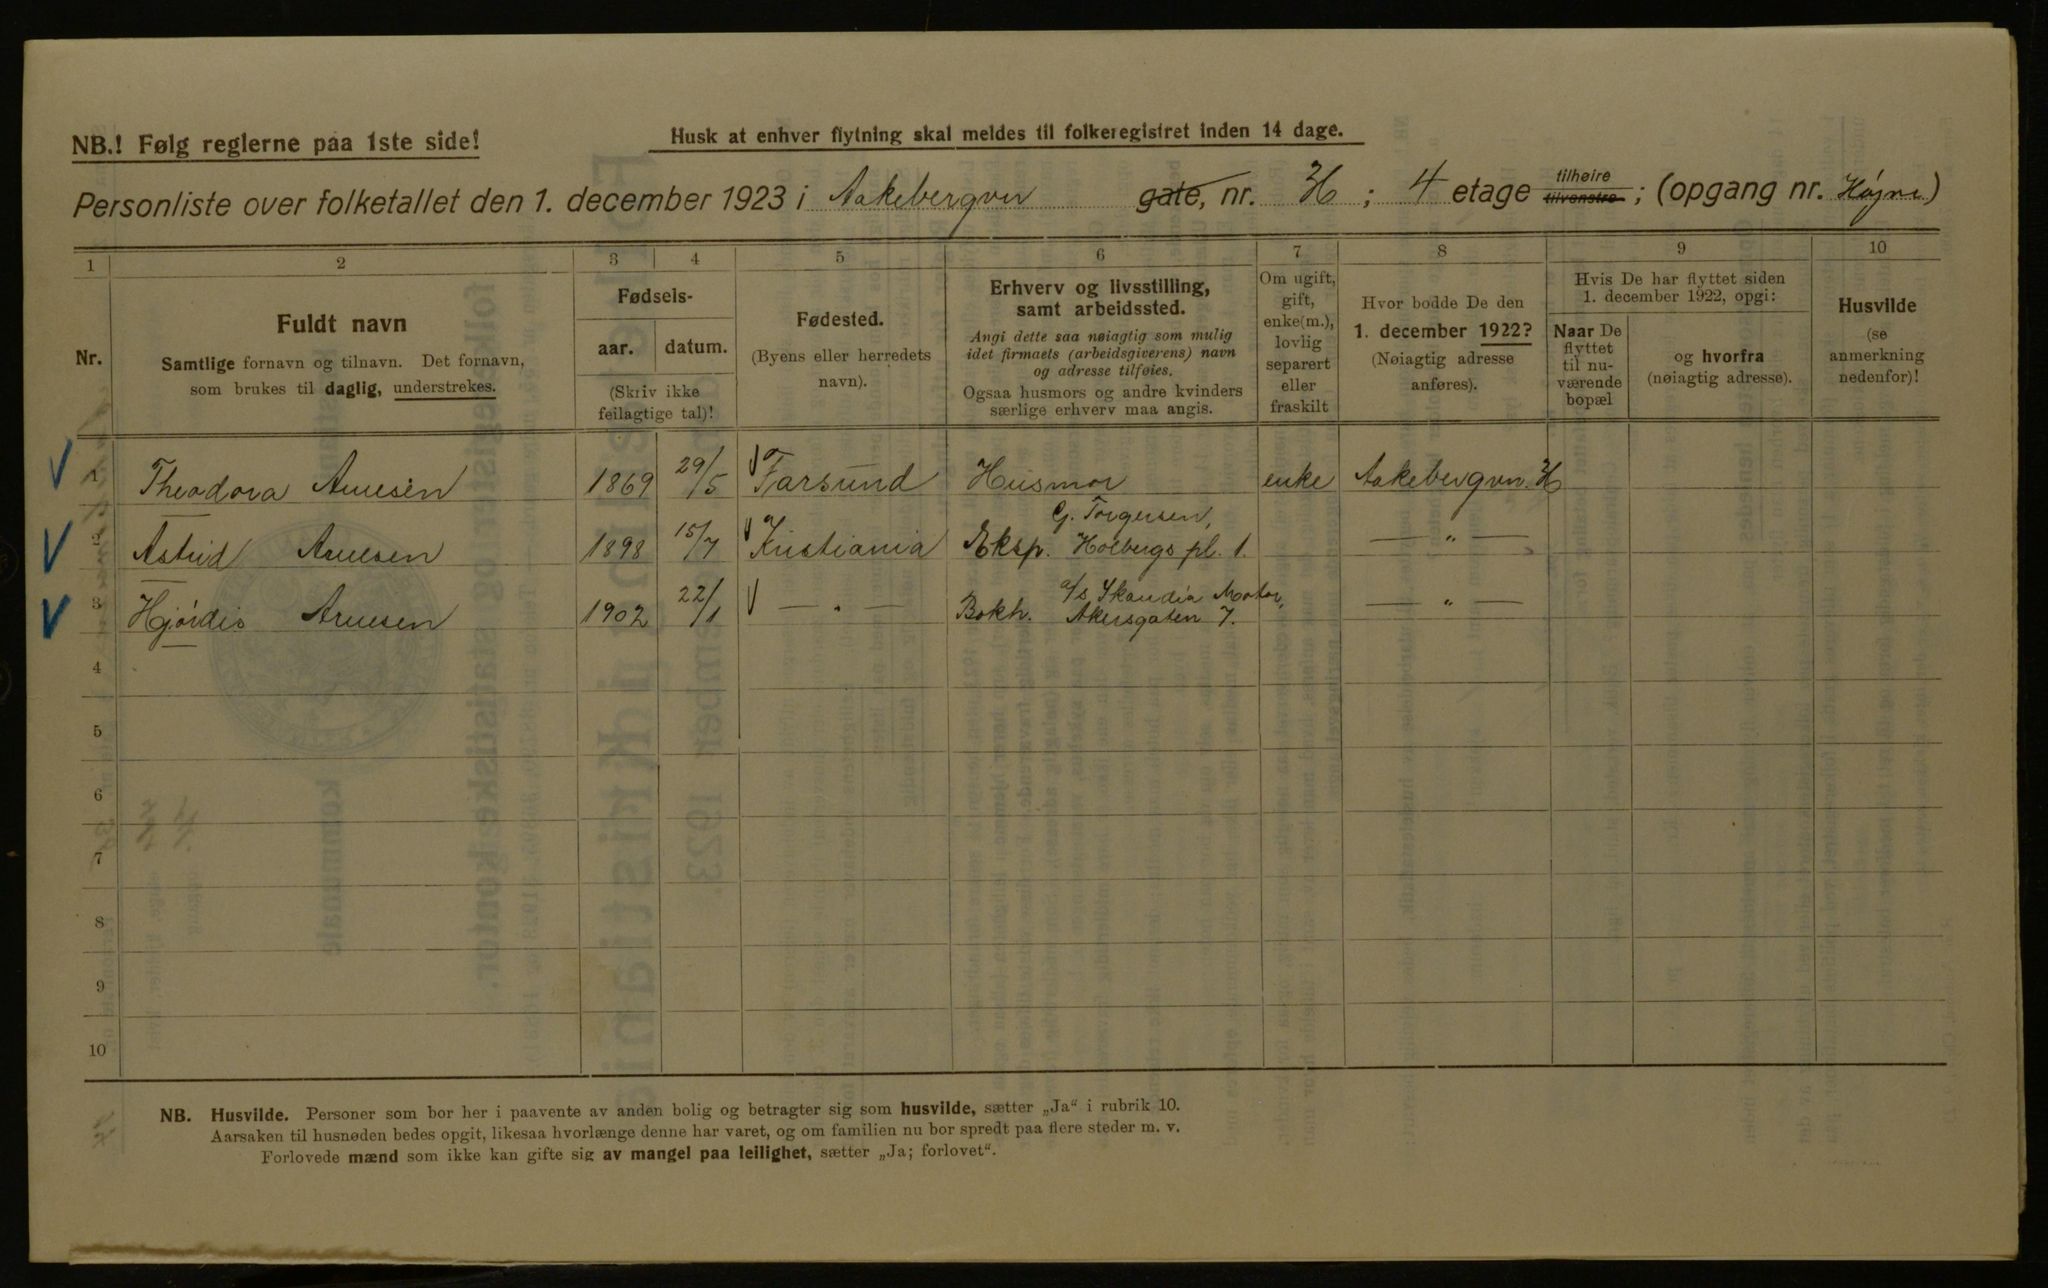 NB.! Følg reglerne paa 1ste side!
Husk at enhver flytning skal meldes til folkeregistret inden 14 dage.
Personliste over folketallet den 1. december 1923 i Aakebergvn gate, nr. ; 4 etage tilhøire tilvenstre ; (opgang nr. )
1 2 3 4 5 6 7 8 9 10
Nr.
Fuldt navn
Samtlige fornavn og tilnavn. Det fornavn,
som brukes til daglig, understrekes.
Fødsels-
aar. datum.
(Skriv ikke
feilagtige tal)!
Fødested.
(Byens eller herredets
navn).
Erhverv og livsstilling,
samt arbeidssted.
Angi dette saa nøiagtig som mulig
idet firmaets (arbeidsgiverens) navn
og adresse tilføies.
Ogsaa husmors og andre kvinders
særlige erhverv maa angis.
Om ugift,
gift,
enke(m.),
lovlig
separert
eller
fraskilt
Hvor bodde De den
1. december 1922?
(Nøiagtig adresse
anføres).
Hvis De har flyttet siden
1. december 1922, opgi:
Naar De
flyttet
til nu-
værende
bopæl
og hvorfra
(nøiagtig adresse).
Husvilde
(se
anmerkning
nedenfor)!
1 Theodora Arnesen 1869 29/5 Farsund Husmor enke Aakebergvn.
2 Astrid Arnesen 1898 15/7 Kristiania Eksp. G. Torgersen, Holbergs pl. 1. — " —
3 Hjørdis Arnesen 1902 22/1 — " — Bokh. a/s Skandia Motor, Akersgaten 7. — " —
4
5
6
7
8
9
10
NB. Husvilde. Personer som bor her i paavente av anden bolig og betragter sig som husvilde, sætter „Ja“ i rubrik 10.
Aarsaken til husnøden bedes opgit, likesaa hvorlænge denne har varet, og om familien nu bor spredt paa flere steder m. v.
Forlovede mænd som ikke kan gifte sig av mangel paa leilighet, sætter „Ja; forlovet“.